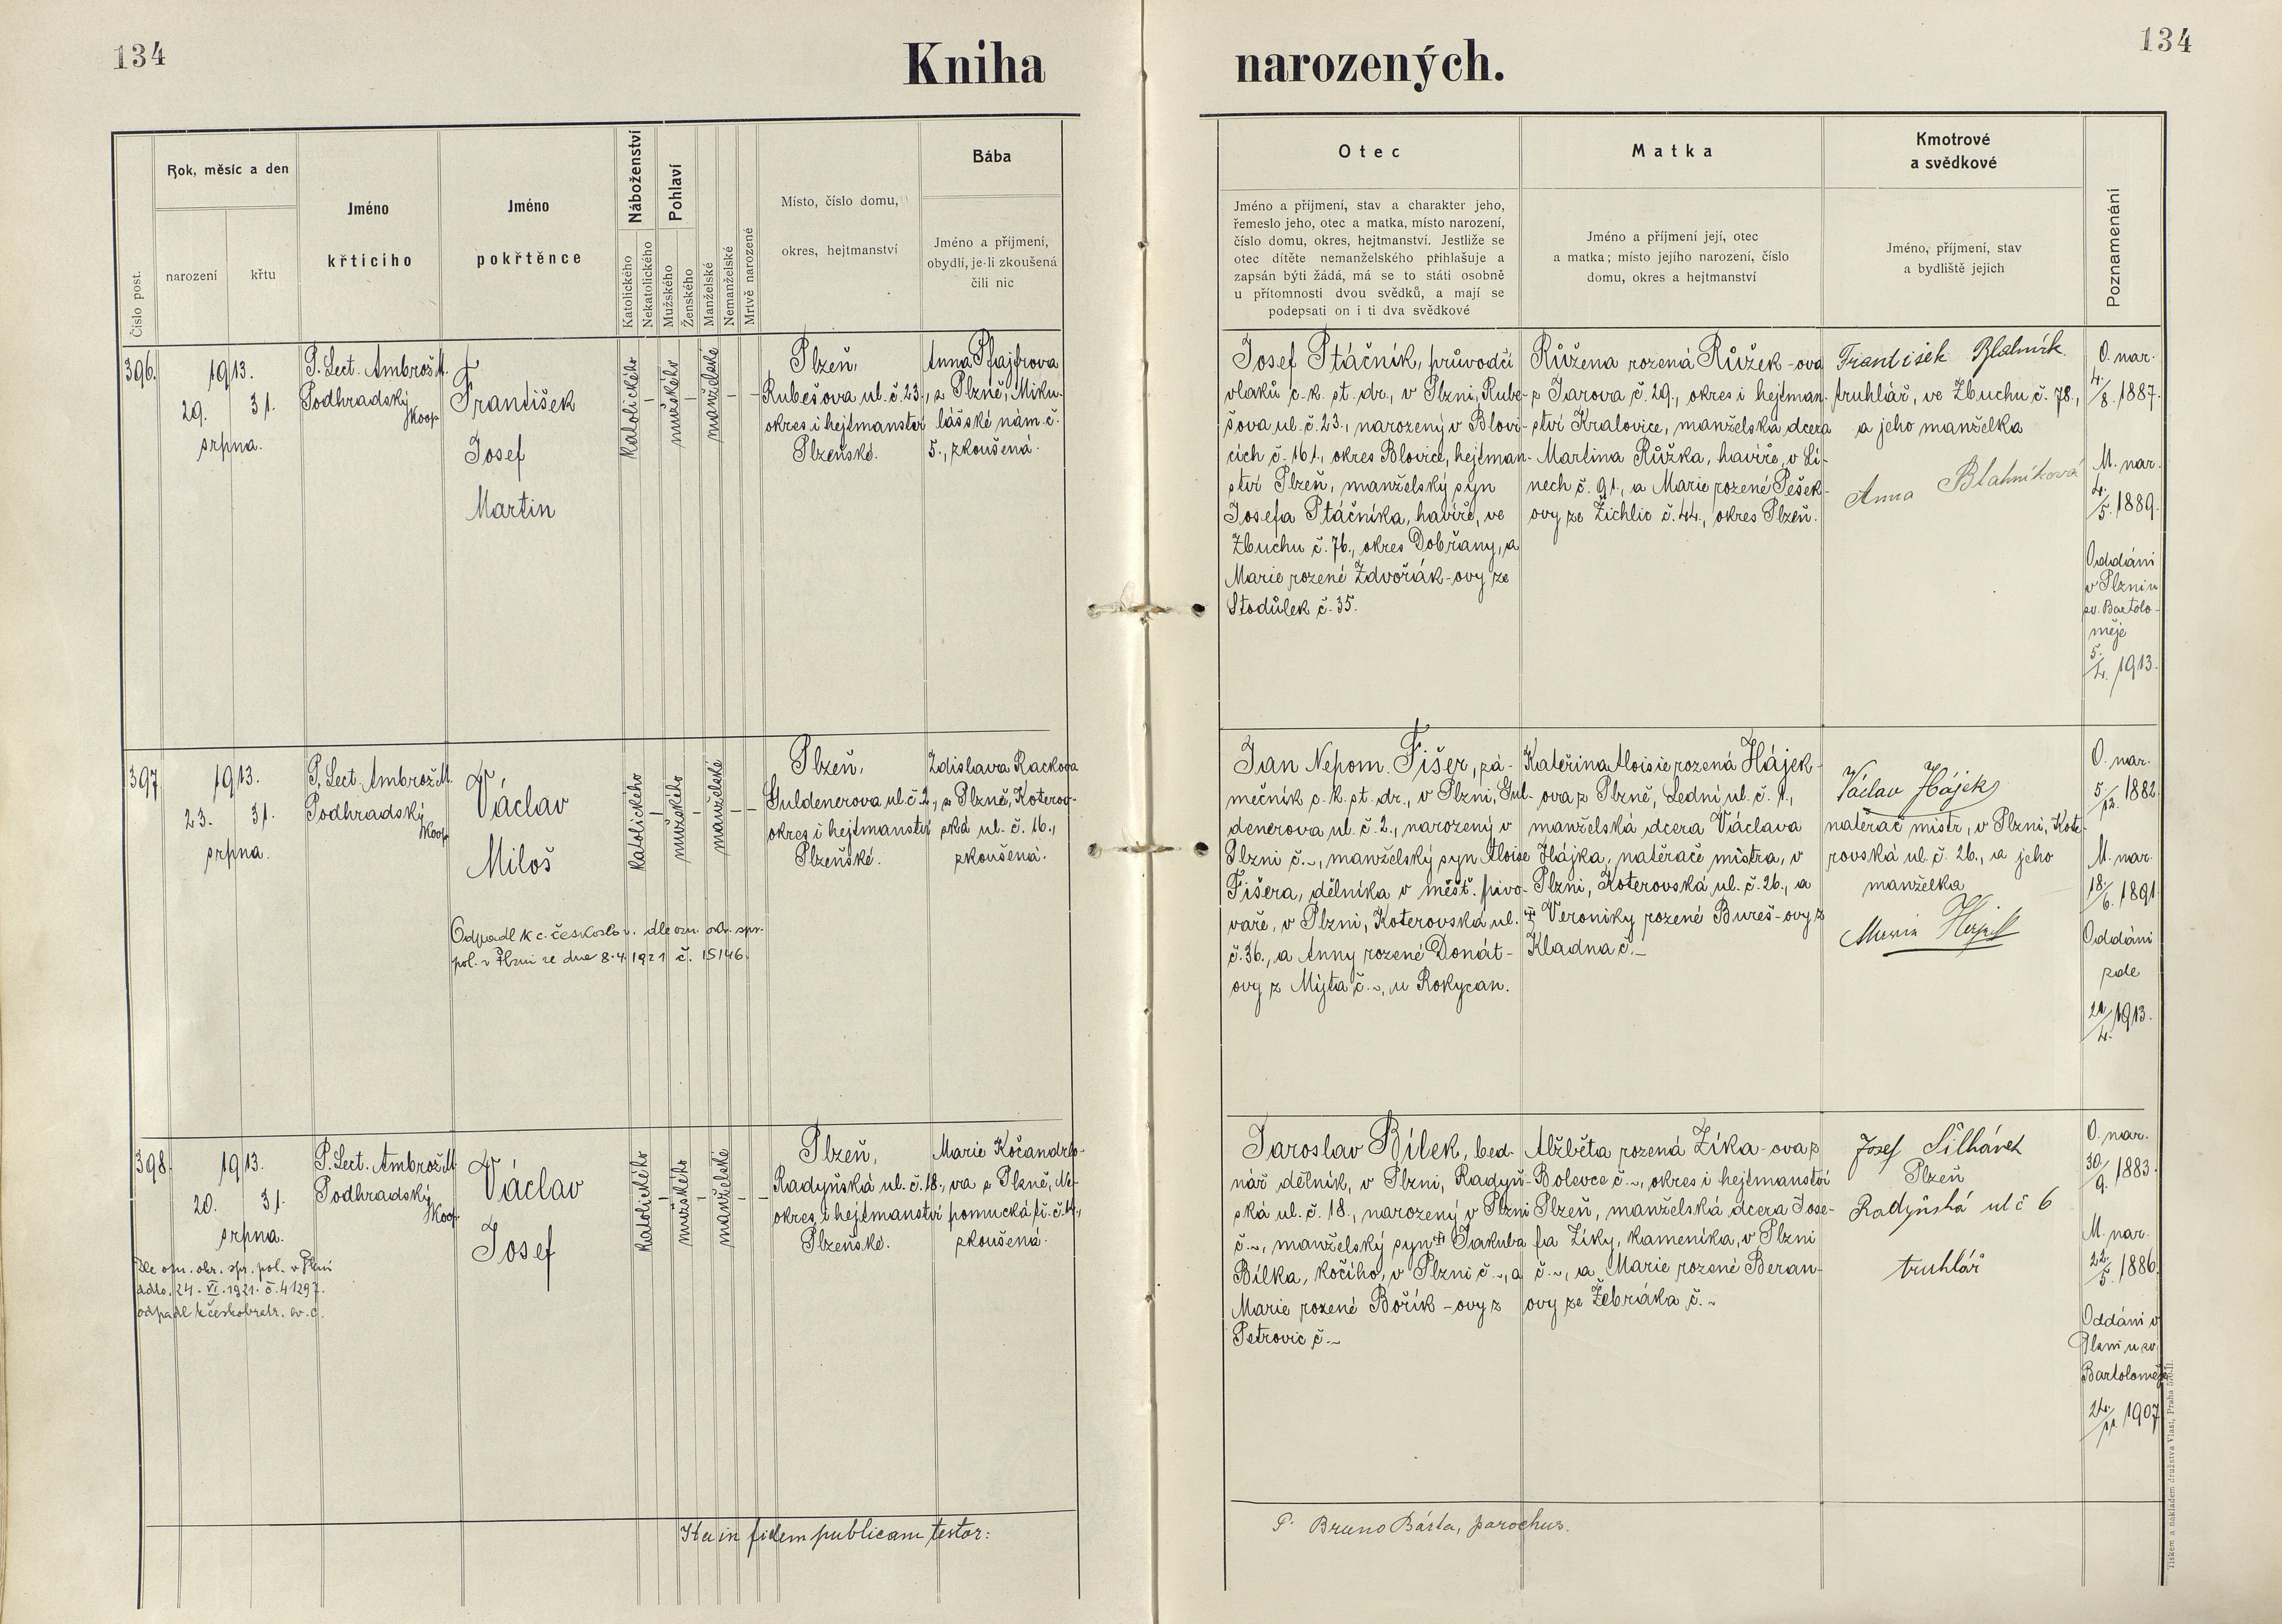 134
Kniha narozených.
134
Číslo post.
Rok, měsíc a den
narození
křtu
Jméno
křticího
Jméno
pokřtěnce
Náboženství
Katolického
Nekatolického
Pohlaví
Mužského
Ženského
Manželské
Nemanželské
Mrtvě narozené
Místo, číslo domu,
okres, hejtmanství
Bába
Jméno a příjmení,
obydlí, je-li zkoušená
čili nic
Otec
Jméno a příjmení, stav a charakter jeho,
řemeslo jeho, otec a matka, místo narození,
číslo domu, okres, hejtmanství. Jestliže se
otec dítěte nemanželského přihlašuje a
zapsán býti žádá, má se to státi osobně
u přítomnosti dvou svědků, a mají se
podepsati on i ti dva svědkové
Matka
Jméno a příjmení její, otec
a matka; místo jejího narození, číslo
domu, okres a hejtmanství
Kmotrové
a svědkové
Jméno, příjmení, stav
a bydliště jejich
Poznamenání
396.
1913.
29. 31.
srpna.
P. Lect. Ambrož M.
Podhradský
Koop.
František
Josef
Martin
katolického
–
mužského
–
manželské
–
–
Plzeň,
Rubešova ul. č. 23.,
okres i hejtmanství
Plzeňské.
Anna Pfajfrova
z Plzně, Miku-
lášské nám. č.
5., zkoušená.
Josef Ptáčník, průvodčí
vlaků c. k. st. dr., v Plzni, Rube-
šova ul. č. 23., narozený v Blovi-
cích č. 161., okres Blovice, hejtman-
ství Plzeň, manželský syn
Josefa Ptáčníka, havíře, ve
Zbuchu č. 76., okres Dobřany, a
Marie rozené Zdvořák-ovy ze
Stodůlek č. 35.
Růžena rozená Růžek-ova
z Jarova č. 29., okres i hejtman-
ství Kralovice, manželská dcera
Martina Růžka, havíře, v Lí-
nech č. 91., a Marie rozené Pešek-
ovy ze Žichlic č. 44., okres Plzeň.
František Blahník
truhlář, ve Zbuchu č. 78.,
a jeho manželka
Anna Blahníková
O. nar.
4./8. 1887.
M. nar.
4./5. 1889.
Oddáni
v Plzni u
sv. Bartolo-
měje
5./4. 1913.
397
1913.
23. 31.
srpna.
P. Lect. Ambrož M.
Podhradský
Koop.
Václav
Miloš
katolického
–
mužského
–
manželské
–
–
Odpadl k c. českoslov. dle ozn. okr. spr.
pol. v Plzni ze dne 8.4. 1921 č. 15146.
Plzeň,
Guldenerova ul. č. 2.,
okres i hejtmanství
Plzeňské.
Zdislava Rackova
z Plzně, Koterov-
ská ul. č. 16.,
zkoušená.
Jan Nepom. Fišer, zá-
mečník c. k. st. dr., v Plzni, Gul-
denerova ul. č. 2., narozený v
Plzni č. ~, manželský syn Aloise
Fišera, dělníka v měšť. pivo-
vaře, v Plzni, Koterovská ul.
č. 36., a Anny rozené Donát-
ovy z Mýta č. ~, u Rokycan.
Kateřina Aloisie rozená Hájek-
ova z Plzně, Lední ul. č. 1.,
manželská dcera Václava
Hájka, natěrače mistra, v
Plzni, Koterovská ul. č. 26., a
Veroniky rozené Bureš-ovy z
Kladna č. –
Václav Hájek
natěrač mistr, v Plzni, Kote-
rovská ul. č. 26., a jeho
manželka
Marie
O. nar.
5/12. 1882.
M. nar.
18/6. 1891
Oddáni
zde
/4. 1913.
398.
1913.
20. 31.
srpna.
Dle ozn. okr. spr. pol. v Plzni
ddto. 24. VI. 1921. č. 41297.
odpadl k českobratr. ev. c.
P. Lect. Ambrož M.
Podhradský
Koop.
Václav
Josef
katolického
–
mužského
–
manželské
–
–
Plzeň,
Radyňská ul. č. 18.,
okres i hejtmanství
Plzeňské.
Marie Kočandrlo-
va z Plzně, Ne-
pomucká tř. č. 4.,
zkoušená.
Jaroslav Bílek, bed-
nář dělník, v Plzni, Radyň-
ská ul. č. 18., narozený v Plzni
č. ~, manželský syn Jakuba
Bílka, kočího, v Plzni č. ~, a
Marie rozené Bořík-ovy z
Petrovic č. ~
Alžběta rozená Zíka-ova z
Bolevce č. ~, okres i hejtmanství
Plzeň, manželská dcera Jose-
fa Zíky, kameníka, v Plzni
č. ~, a Marie rozené Beran-
ovy ze Žebráka č. ~
Josef Šilhánek
Plzeň
Radyňská ul č 6
truhlář
O. nar.
30/9. 1883.
M. nar.
22/5. 1886.
Oddáni v
Plzni u sv.
Bartoloměje
24./11. 1907
Ita in fidem publicam testor:
P. Bruno Bárta, parochus.
Tiskem a nákladem družstva Vlast, Praha